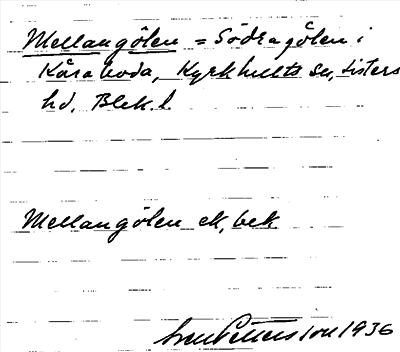 Mellangölen = Södragölen i
Kåraboda, Kyrkhults sn, Listers
hd. Blek. l.
Mellangölen ek, bek.
1936